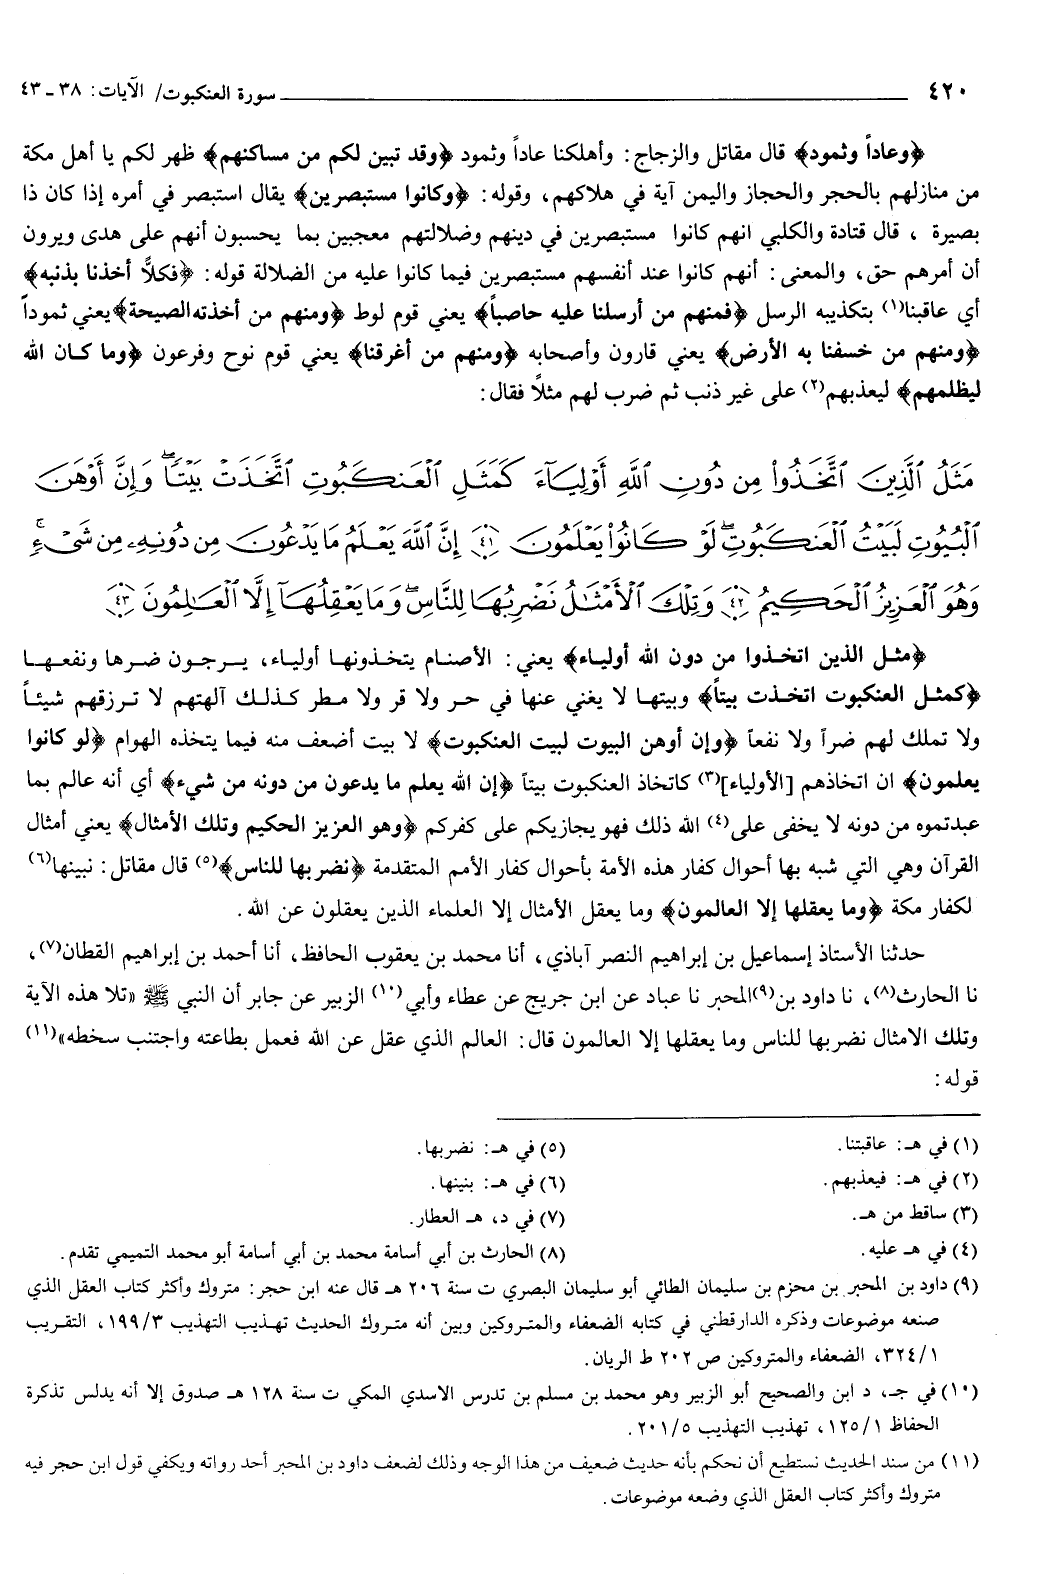 ٤٢٠ سورة العنكبوت/ الآيات: ٣٨ ـ ٤٣
﴿وعاداً وثمود﴾ قال مقاتل والزجاج: وأهلكنا عاداً وثمود ﴿وقد تبين لكم من مساكنهم﴾ ظهر لكم يا أهل مكة
من منازلهم بالحجر والحجاز واليمن آية في هلاكهم، وقوله: ﴿وكانوا مستبصرين﴾ يقال استبصر في أمره إذا كان ذا
بصيرة ، قال قتادة والكلبي انهم كانوا مستبصرين في دينهم وضلالتهم معجبين بما يحسبون أنهم على هدى ويرون
أن أمرهم حق، والمعنى: أنهم كانوا عند أنفسهم مستبصرين فيما كانوا عليه من الضلالة قوله: ﴿فكلاً أخذنا بذنبه﴾
أي عاقبنا(١) بتكذيبه الرسل ﴿فمنهم من أرسلنا عليه حاصباً﴾ يعني قوم لوط ﴿ومنهم من أخذته الصيحة﴾ يعني ثموداً
﴿ومنهم من خسفنا به الأرض﴾ يعني قارون وأصحابه ﴿ومنهم من أغرقنا﴾ يعني قوم نوح وفرعون ﴿وما كان الله
ليظلمهم﴾ ليعذبهم(٢) على غير ذنب ثم ضرب لهم مثلاً فقال:
مَثَلُ الَّذِينَ اتَّخَذُوا مِن دُونِ اللَّهِ أَوْلِيَاءَ كَمَثَلِ الْعَنكَبُوتِ اتَّخَذَتْ بَيْتًا وَإِنَّ أَوْهَنَ
الْبُيُوتِ لَبَيْتُ الْعَنكَبُوتِ لَوْ كَانُوا يَعْلَمُونَ ٤١ إِنَّ اللَّهَ يَعْلَمُ مَا يَدْعُونَ مِن دُونِهِ مِن شَيْءٍ
وَهُوَ الْعَزِيزُ الْحَكِيمُ ٤٢ وَتِلْكَ الْأَمْثَالُ نَضْرِبُهَا لِلنَّاسِ وَمَا يَعْقِلُهَا إِلَّا الْعَالِمُونَ ٤٣
﴿مثل الذين اتخذوا من دون الله أولياء﴾ يعني: الأصنام يتخذونها أولياء، يرجون ضرها ونفعها
﴿كمثل العنكبوت اتخذت بيتاً﴾ وبيتها لا يغني عنها في حر ولا قر ولا مطر كذلك آلهتهم لا ترزقهم شيئاً
ولا تملك لهم ضراً ولا نفعاً ﴿وإن أوهن البيوت لبيت العنكبوت﴾ لا بيت أضعف منه فيما يتخذه الهوام ﴿لو كانوا
يعلمون﴾ ان اتخاذهم [الأولياء](٣) كاتخاذ العنكبوت بيتاً ﴿إن الله يعلم ما يدعون من دونه من شيء﴾ أي أنه عالم بما
عبدتموه من دونه لا يخفى على(٤) الله ذلك فهو يجازيكم على كفركم ﴿وهو العزيز الحكيم وتلك الأمثال﴾ يعني أمثال
القرآن وهي التي شبه بها أحوال كفار هذه الأمة بأحوال كفار الأمم المتقدمة ﴿نضربها للناس﴾(٥) قال مقاتل: نبينها(٦)
لكفار مكة ﴿وما يعقلها إلا العالمون﴾ وما يعقل الأمثال إلا العلماء الذين يعقلون عن الله.
حدثنا الأستاذ إسماعيل بن إبراهيم النصر آباذي، أنا محمد بن يعقوب الحافظ، أنا أحمد بن إبراهيم القطان(٧)،
نا الحارث(٨)، نا داود بن(٩) المحبر نا عباد عن ابن جريج عن عطاء وأبي(١٠) الزبير عن جابر أن النبي ﷺ «تلا هذه الآية
وتلك الامثال نضربها للناس وما يعقلها إلا العالمون قال: العالم الذي عقل عن الله فعمل بطاعته واجتنب سخطه»(١١)
قوله:
(١) في هـ: عاقبتنا.
(٢) في هـ: فيعذبهم.
(٣) ساقط من هـ.
(٤) في هـ عليه.
(٥) في هـ: نضربها.
(٦) في هـ: بنينها.
(٧) في د، هـ العطار.
(٨) الحارث بن أبي أسامة محمد بن أبي أسامة أبو محمد التميمي تقدم.
(٩) داود بن المحبر بن محزم بن سليمان الطائي أبو سليمان البصري ت سنة ٢٠٦ هـ قال عنه ابن حجر: متروك وأكثر كتاب العقل الذي
صنعه موضوعات وذكره الدارقطني في كتابه الضعفاء والمتروكين وبين أنه متروك الحديث تهذيب التهذيب ١٩٩/٣، التقريب
٣٢٤/١، الضعفاء والمتروكين ص ٢٠٢ ط الريان.
(١٠) في جـ، د ابن والصحيح أبو الزبير وهو محمد بن مسلم بن تدرس الاسدي المكي ت سنة ١٢٨ هـ صدوق إلا أنه يدلس تذكرة
الحفاظ ١٢٥/١، تهذيب التهذيب ٢٠١/٥.
(١١) من سند الحديث نستطيع أن نحكم بأنه حديث ضعيف من هذا الوجه وذلك لضعف داود بن المحبر أحد رواته ويكفي قول ابن حجر فيه
متروك وأكثر كتاب العقل الذي وضعه موضوعات.